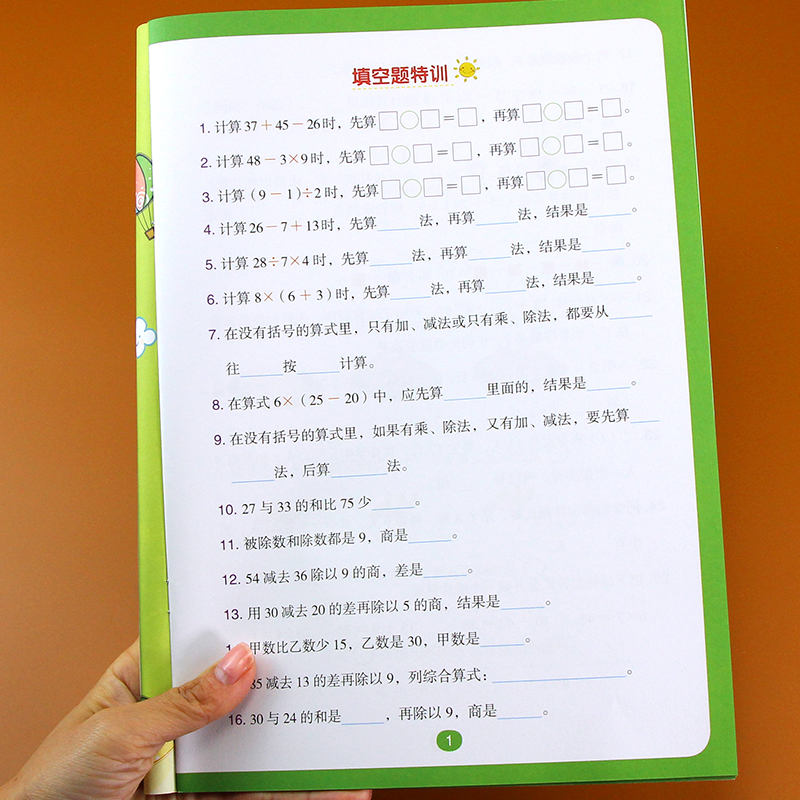 填空题特训
1. 计算 37＋45－26时，先算□○□＝□，再算□○□＝□。
2. 计算 48－3×9时，先算□○□＝□，再算□○□＝□。
3. 计算（9－1）÷2时，先算□○□＝□，再算□○□＝□。
4. 计算26－7＋13时，先算_____法，再算_____法，结果是_____。
5. 计算 28÷7×4时，先算_____法，再算_____法，结果是_____。
6. 计算 8×（6＋3）时，先算_____法，再算_____法，结果是_____。
7. 在没有括号的算式里，只有加、减法或只有乘、除法，都要从_____
往_____按_____计算。
8. 在算式 6×（25－20）中，应先算_____里面的，结果是_____。
9. 在没有括号的算式里，如果有乘、除法，又有加、减法，要先算____
_____法，后算_______法。
10. 27 与 33 的和比 75 少_____。
11. 被除数和除数都是 9，商是_____。
12. 54 减去 36 除以 9 的商，差是_____。
13. 用 30 减去 20 的差再除以 5 的商，结果是_____。
甲数比乙数少 15，乙数是 30，甲数是_____。
85 减去 13 的差再除以 9，列综合算式：________________。
16. 30 与 24 的和是_____，再除以 9，商是_____。
1